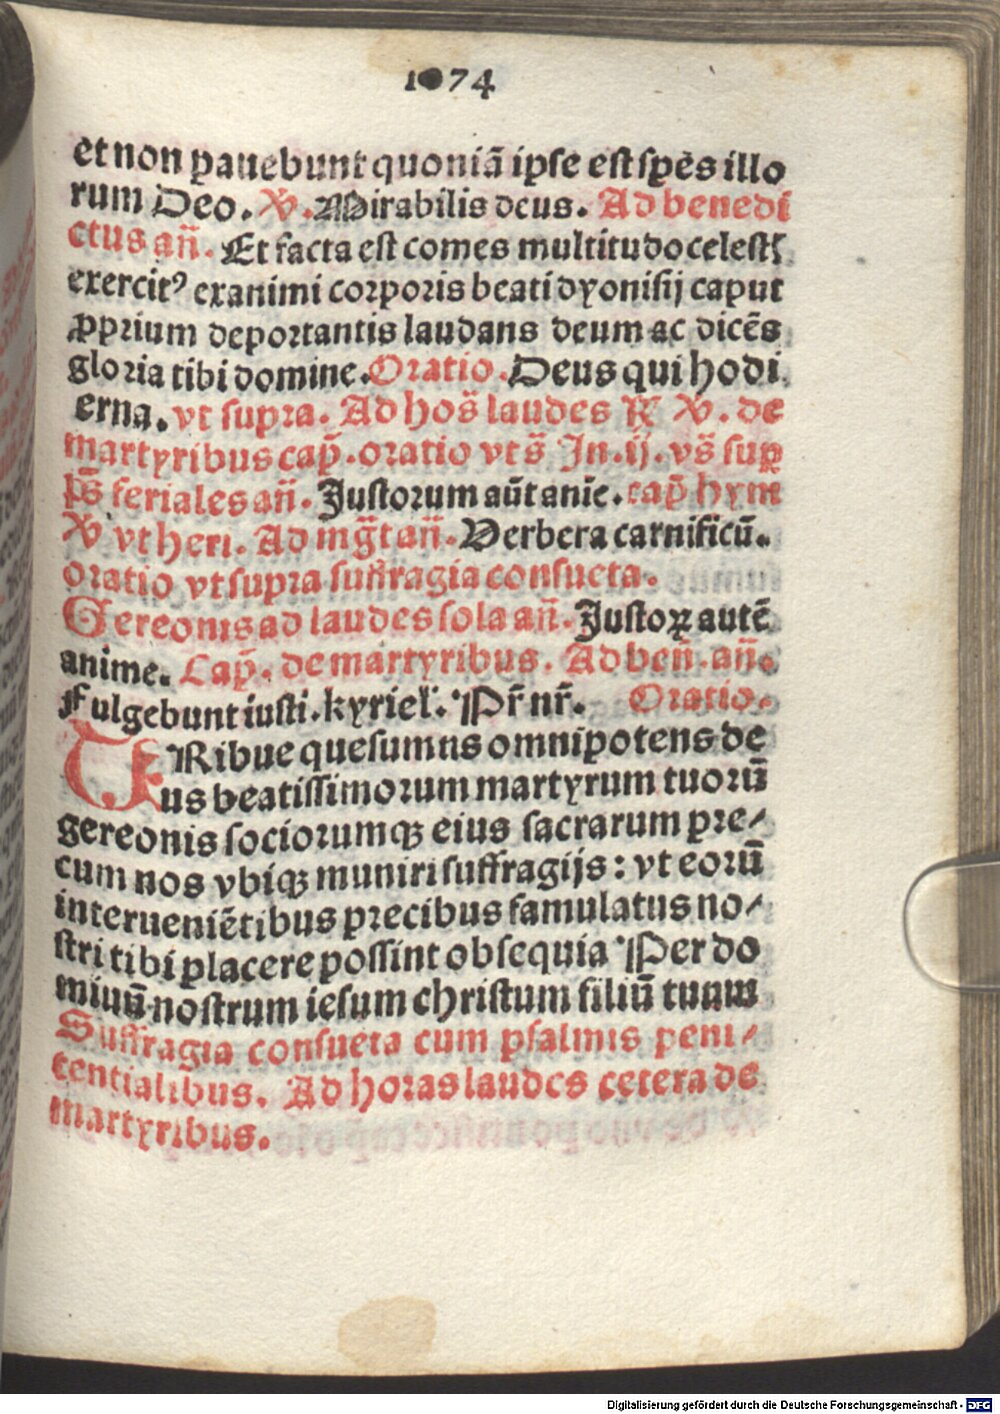 1074
et non pauebunt quoniā ipse est spēs illo
rum Deo. ℣. Mirabilis deus. Ad benedi
ctus an̄. Et facta est comes multitudo celestꝭ
exercitꝰ exanimi corporis beati dyonisij caput
ꝓprium deportantis laudans deum ac dicēs
gloria tibi domine. Oratio. Deus qui hodi
erna. vt supra. Ad hos̄ laudes ℟ ℣. de
martyribus cap̄. oratio vts̄ In. ij. vs̄ sup
ps̄ feriales an̄. Justorum aūt anie. cap̄ hym
℣ vt heri. Ad mḡt an̄. Verbera carnificū.
oratio vt supra suffragia consueta.
Gereonis ad laudes sola an̄. Justoꝝ autē
anime. Cap̄. de martyribus. Ad ben̄. an̄.
Fulgebunt iusti. kyriel'. Pr̄ nr̄. Oratio.
TRibue quesumus omnipotens de
us beatissimorum martyrum tuorū
gereonis sociorumqꝫ eius sacrarum pre-
cum nos vbiqꝫ muniri suffragijs: vt eorū
interueniētibus precibus famulatus no-
stri tibi placere possint obsequia Per do
minū nostrum iesum christum filiū tuum
Suffragia consueta cum psalmis peni-
tentialibus. Ad horas laudes cetera de
martyribus.
Digitalisierung gefördert durch die Deutsche Forschungsgemeinschaft - DFG